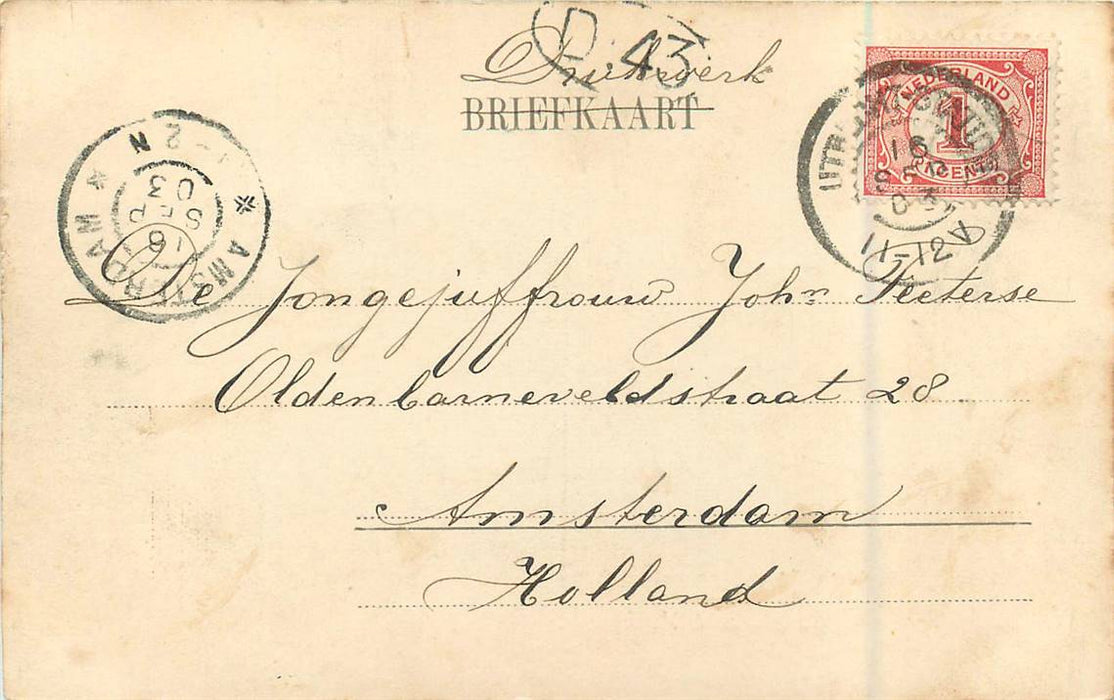 D 43
Drukwerk
BRIEFKAART
NEDERLAND
1
CENT
16
SEP
03
11-12V
AMSTERDAM
1-2 N
16
SEP
03
De Jongejuffrouw John Peeterse
Oldenbarneveldstraat 28
Amsterdam
Holland